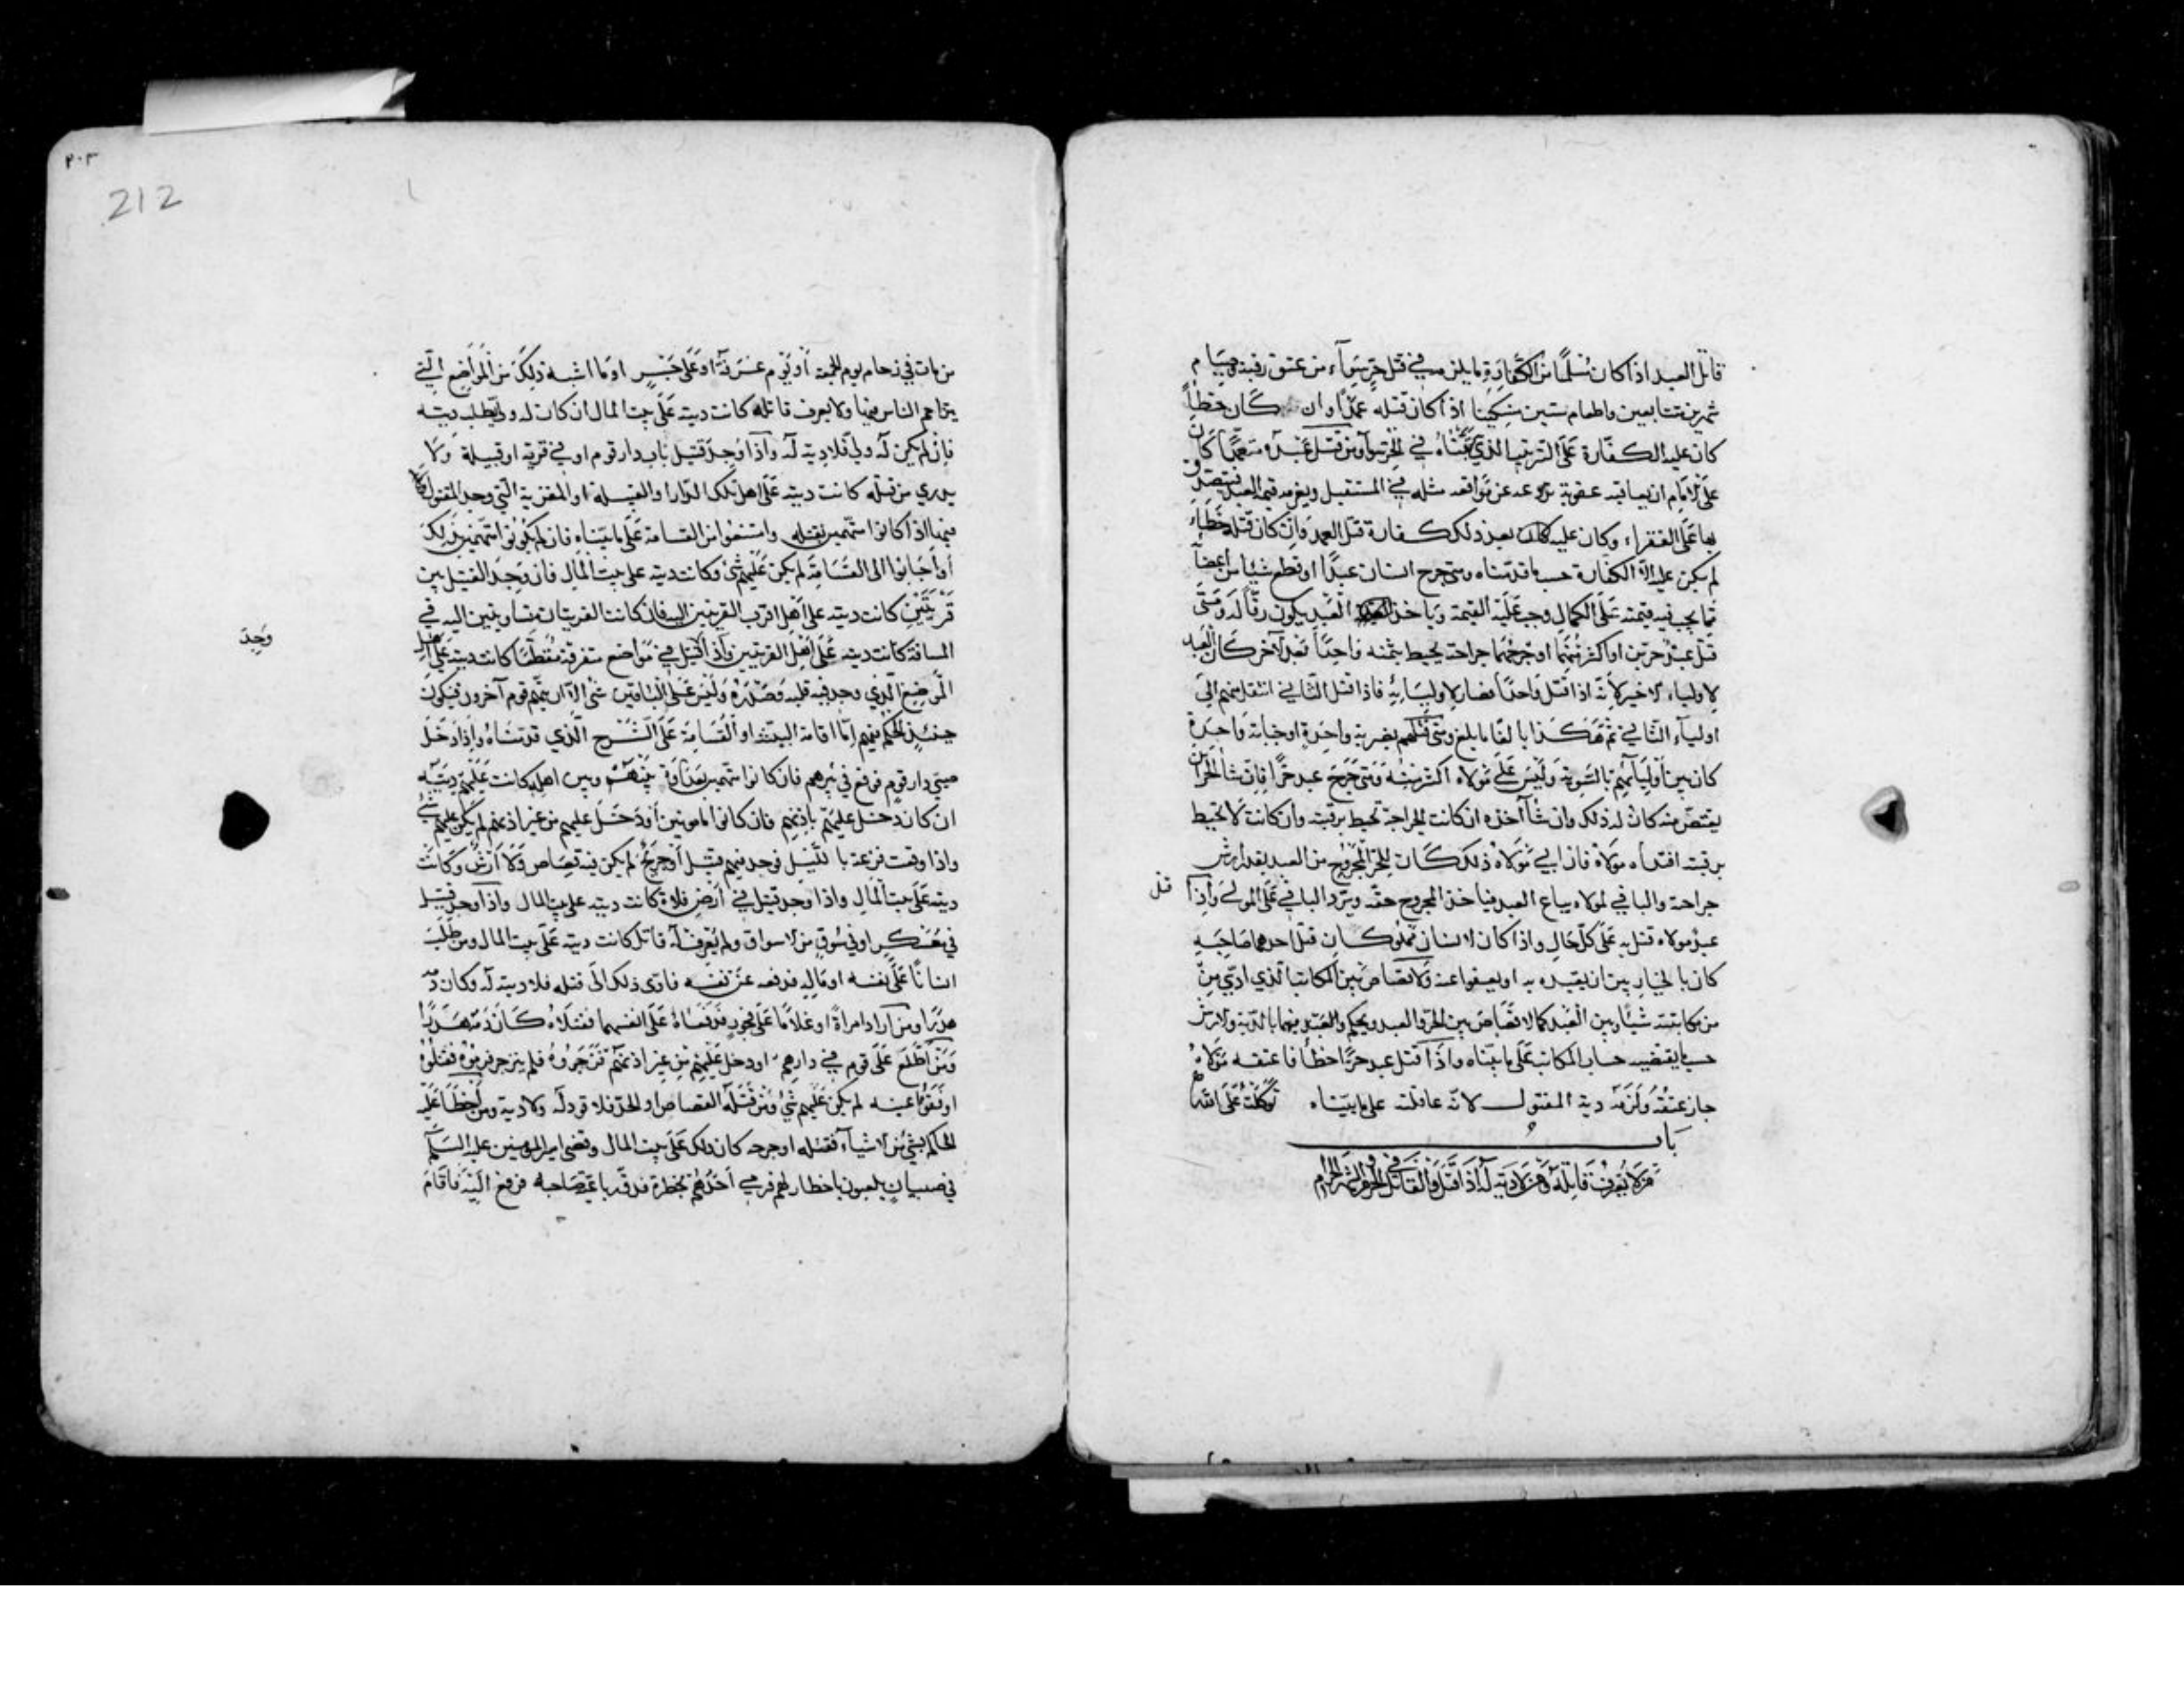 قاتل العبد اذا كان مسلما من الكفارة ما يلزمه في قتل حر سواء من عتق رقبة وصيام
شهرين متتابعين واطعام ستين مسكينا اذا كان قتله عمدا وان كان خطأ
كان عليه الكفارة على الترتيب الذي بيناه في الحر سواء ومن قتل عبده متعمدا كان
على الامام ان يعاقبه عقوبة تردعه عن مواقعة مثله في المستقبل ويغرمه قيمة العبد فيتصدق
بها على الفقراء وكان عليه بعد ذلك كفارة قتل العمد وان كان قتله خطاء
لم يكن عليه الا الكفارة حسب ما قدمناه ومتى جرح انسان عبدا او قطع شيئا من اعضائه
مما يجب فيه قيمته على الكمال وجب عليه القيمة وياخذ العبد يكون رقا له ومتى
قتل عبد حرين او اكثر منهما او جرحهما جراحة يحيط بثمنه واحدا بعد الآخر كان العبد
لاولياء الاخير لانه اذا قتل واحدا فصار لاوليائه فاذا قتل الثاني انتقل منهم الى
اولياء الثاني ثم هكذا بالغا ما بلغ ومتى قتلهم بضربة واحدة او جناية واحدة
كان بين اوليائهم بالسوية وليس على مولاه اكثر منه ومتى جرح عبد حرا فان شاء الحر ان
يقتص منه كان له ذلك وان شاء اخذه ان كانت الجراحة تحيط برقبته وان كانت لا تحيط
برقبته افتداه مولاه فان ابى مولاه ذلك كان للحر المجروح من العبد بقدر ارش
جراحته والباقي لمولاه يباع العبد فياخذ المجروح حقه ويرد الباقي على المولى واذا قتل
عبد مولاه قتل به على كل حال واذا كان لانسان مملوكان قتل احدهما صاحبه
كان بالخيار بين ان يقيده به او يعفوا عنه ولا قصاص بين المكاتب الذي ادى من
من مكاتبته شيئا وبين العبد كما لا قصاص بين الحر والعبد ويحكم والعبد فيهما بالدية والارش
حسب ما يقتضيه حساب المكاتب على ما بيناه واذا قتل عبد حرا خطأ فاعتقه مولاه
جاز عتقه ولزمه دية المقتول لانه عاقلته على ما بيناه توكلت على الله
باب
من لا يعرف قاتله ومن لا دية له اذا قتل والقاتل في الحرم والشهر الحرام
٢٠٣
212
من مات في زحام يوم الجمعة او يوم عرفة او على جسر او ما اشبه ذلك من المواضع التي
يتزاحم الناس فيها ولا يعرف قاتله كانت ديته على بيت المال ان كان له ولي يطلب ديته
فان لم يكن له ولي فلا دية له واذا وجد قتيل باب دار قوم او في قرية او قبيلة ولا
يدرى من قتله كانت ديته على اهل تلك الدار او القبيلة او القرية التي وجد المقتول
فيها اذا كانوا متهمين بقتله وامتنعوا من القسامة على ما بيناه فان لم يكونوا متهمين بذلك
او اجابوا الى القسامة لم يكن عليهم شئ وكانت ديته على بيت المال فان وجد القتيل بين
قريتين كانت ديته على اهل اقرب القريتين اليه فان كانت القريتان متساويتين اليه في
المسافة كانت ديته على اهل القريتين واذا قتيل في مواضع متفرقة مقطعا كانت ديته على اهل
وجد
الموضع الذي وجد فيه قلبه وصدره وليس على الباقين شئ الا ان يتهم قوم آخرون فيكون
حينئذ الحكم فيهم اما اقامة البينة او القسامة على الشرح الذي قدمناه واذا دخل
صبي دار قوم فوقع في بئرهم فان كانوا متهمين بعداوة بينهم وبين اهله كانت عليهم ديته
ان كان دخل عليهم باذنهم فان كانوا مامونين او دخل عليهم من غير اذنهم لم يكن عليهم شئ
واذا وقعت فزعة بالليل فوجد فيهم قتيل او جريح لم يكن فيه قصاص ولا ارش وكانت
ديته على بيت المال واذا وجد قتيل في ارض فلاة كانت ديته على بيت المال واذا وجد قتيل
في معسكر او في سوق من الاسواق ولم يعرف له قاتل كانت ديته على بيت المال ومن طلب
انسانا على نفسه او ماله فدفعه عن نفسه فادى ذلك الى قتله فلا دية له وكان دمه
هدرا ومن اراد امراة او غلاما على فجور فدفعاه على انفسهما فقتلاه كان دمه هدرا
ومن اطلع على قوم في دارهم او دخل عليهم من غير اذنهم فزجروه فلم ينزجر فرموه فقتلوه
او فقوا عينه لم يكن عليهم شئ ومن قتله القصاص او الحد فلا قود له ولا دية ومن اخطا عليه
الحاكم بشئ من الاشياء فقتله او جرحه كان ذلك على بيت المال وقضى امير المومنين عليه السلم
في صبيان يلعبون باخطار لهم فرمى احدهم بخطره فدق رباعية صاحبه فرفع اليه فاقام